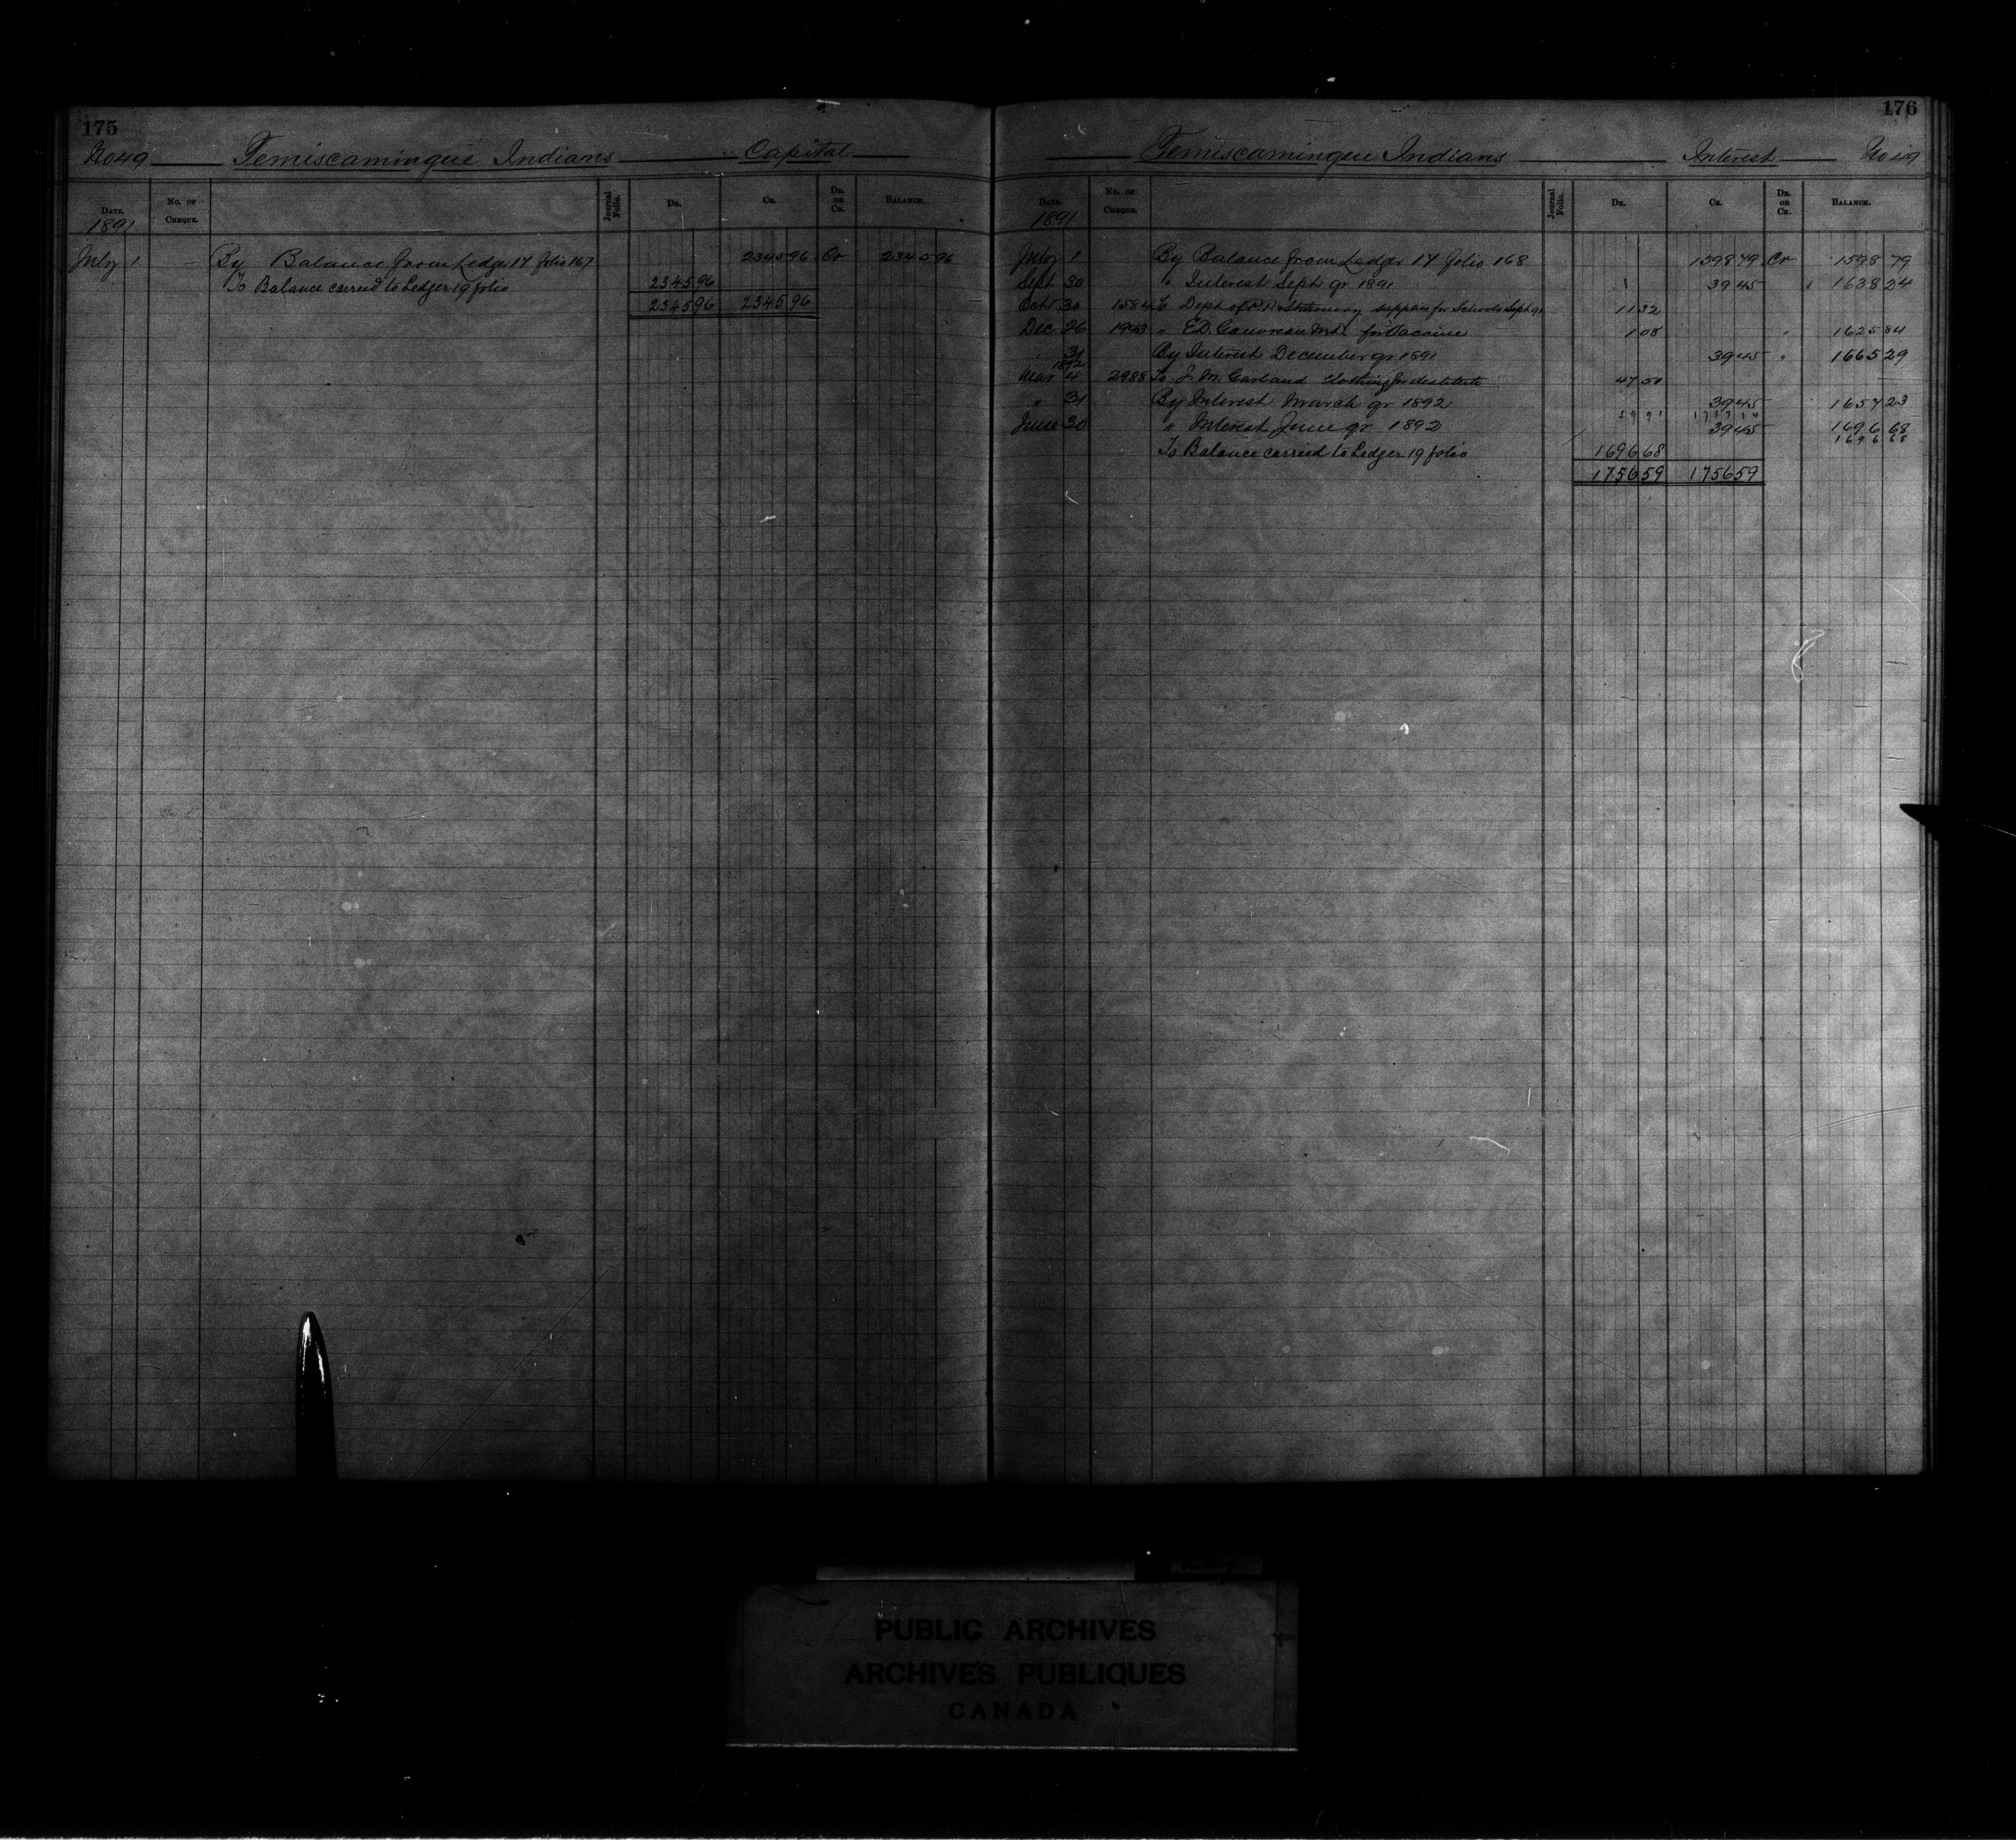 175
No 49 Temiscamingue Indians Capital
DATE. No. OF CHEQUE. Journal Folio. DR. CR. DR. OR CR. BALANCE.
1891
July 1 By Balance from Ledger 17 folio 167 2345 96 Cr 2345 96
To Balance carried to Ledger 19 folio 2345 96
2345 96 2345 96
176
Temiscamingue Indians Interest No 49
DATE. No. OF CHEQUE. Journal Folio. DR. CR. DR. OR CR. BALANCE.
1891
July 1 By Balance from Ledger 17 folio 168 1598 79 Cr 1598 79
Sept 30 " Interest Sept qr 1891 39 45 1638 24
Oct 30 1584 To Dept of P.P. & Stationery supplies for Schools Sept 91 11 32
Dec 26 1943 " E.D. M.D. for Vaccine 1 08 " 1625 84
" 31 By Interest December qr 1891 39 45 " 1665 29
1892
Mar 4 2988 To J. M. Garland clothing for destitute 47 51
" 31 By Interest March qr 1892 39 45 1657 23
59 91 1717 14
June 30 " Interest June qr 1892 39 45 1696 68
1696 68
To Balance carried to Ledger 19 folio 1696 68
1756 59 1756 59
PUBLIC ARCHIVES
ARCHIVES PUBLIQUES
CANADA